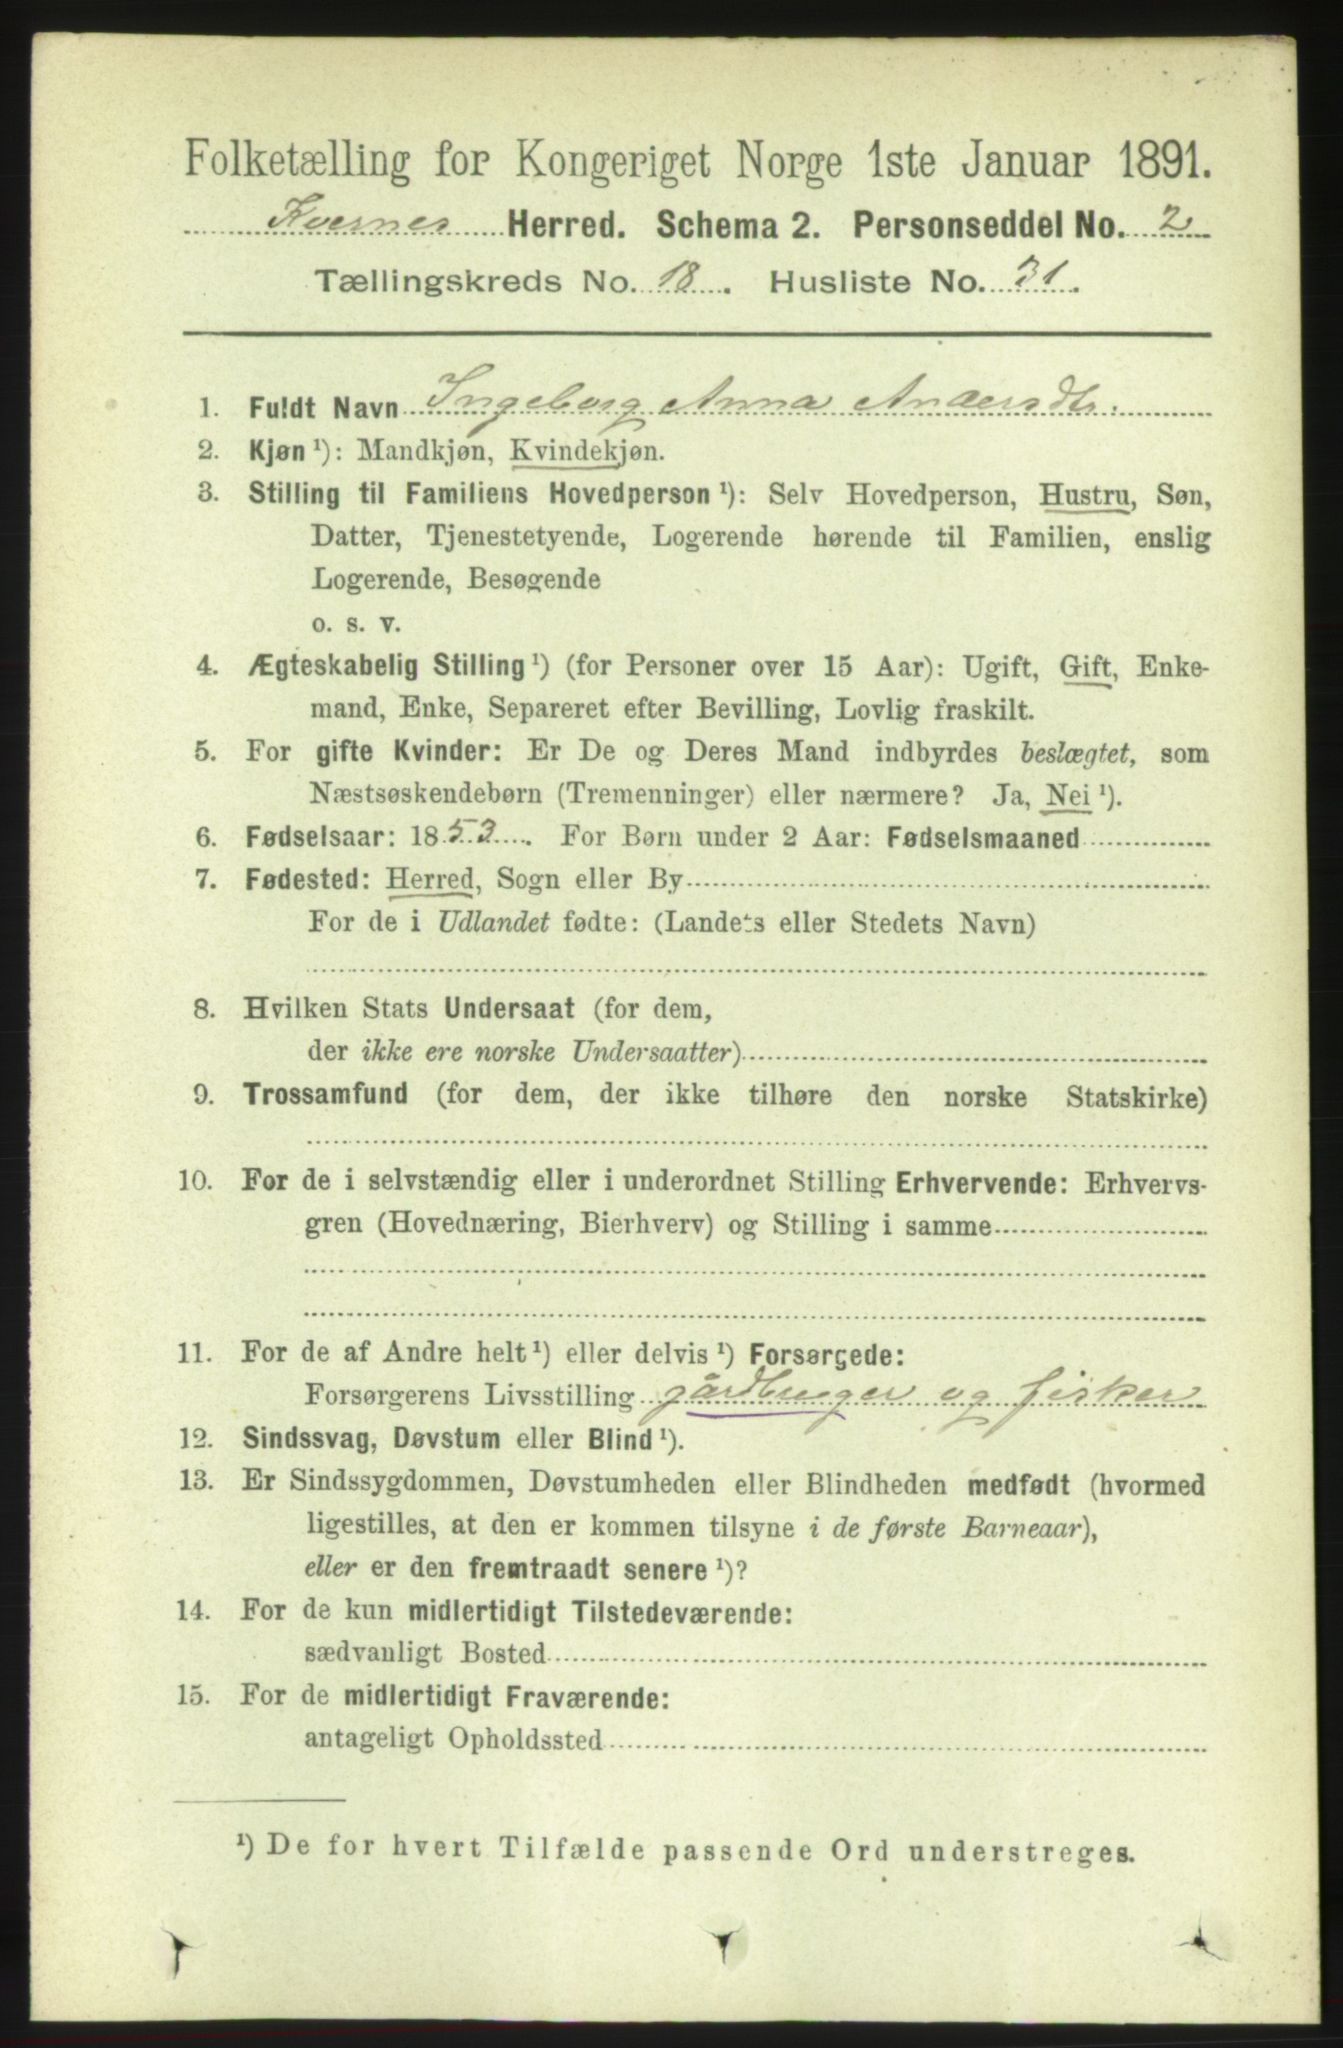 Folketælling for Kongeriget Norge 1ste Januar 1891.
Kvernes Herred. Schema 2. Personseddel No. 2
Tællingskreds No. 18. Husliste No. 31.
1. Fuldt Navn Ingeborg Anna Andersdtr.
2. Kjøn ¹): Mandkjøn, Kvindekjøn.
3. Stilling til Familiens Hovedperson ¹): Selv Hovedperson, Hustru, Søn,
Datter, Tjenestetyende, Logerende hørende til Familien, enslig
Logerende, Besøgende
o. s. v.
4. Ægteskabelig Stilling ¹) (for Personer over 15 Aar): Ugift, Gift, Enke-
mand, Enke, Separeret efter Bevilling, Lovlig fraskilt.
5. For gifte Kvinder: Er De og Deres Mand indbyrdes beslægtet, som
Næstsøskendebørn (Tremenninger) eller nærmere? Ja, Nei ¹).
6. Fødselsaar: 1853. For Børn under 2 Aar: Fødselsmaaned
7. Fødested: Herred, Sogn eller By
For de i Udlandet fødte: (Landets eller Stedets Navn)
8. Hvilken Stats Undersaat (for dem,
der ikke ere norske Undersaatter)
9. Trossamfund (for dem, der ikke tilhøre den norske Statskirke)
10. For de i selvstændig eller i underordnet Stilling Erhvervende: Erhvervs-
gren (Hovednæring, Bierhverv) og Stilling i samme
11. For de af Andre helt ¹) eller delvis ¹) Forsørgede:
Forsørgerens Livsstilling gårdbruger og fisker
12. Sindssvag, Døvstum eller Blind ¹).
13. Er Sindssygdommen, Døvstumheden eller Blindheden medfødt (hvormed
ligestilles, at den er kommen tilsyne i de første Barneaar),
eller er den fremtraadt senere ¹)?
14. For de kun midlertidigt Tilstedeværende:
sædvanligt Bosted
15. For de midlertidigt Fraværende:
antageligt Opholdssted
¹) De for hvert Tilfælde passende Ord understreges.